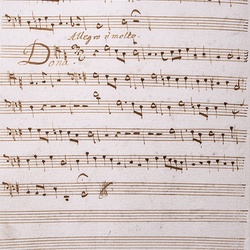 Allegro è molto
Dona